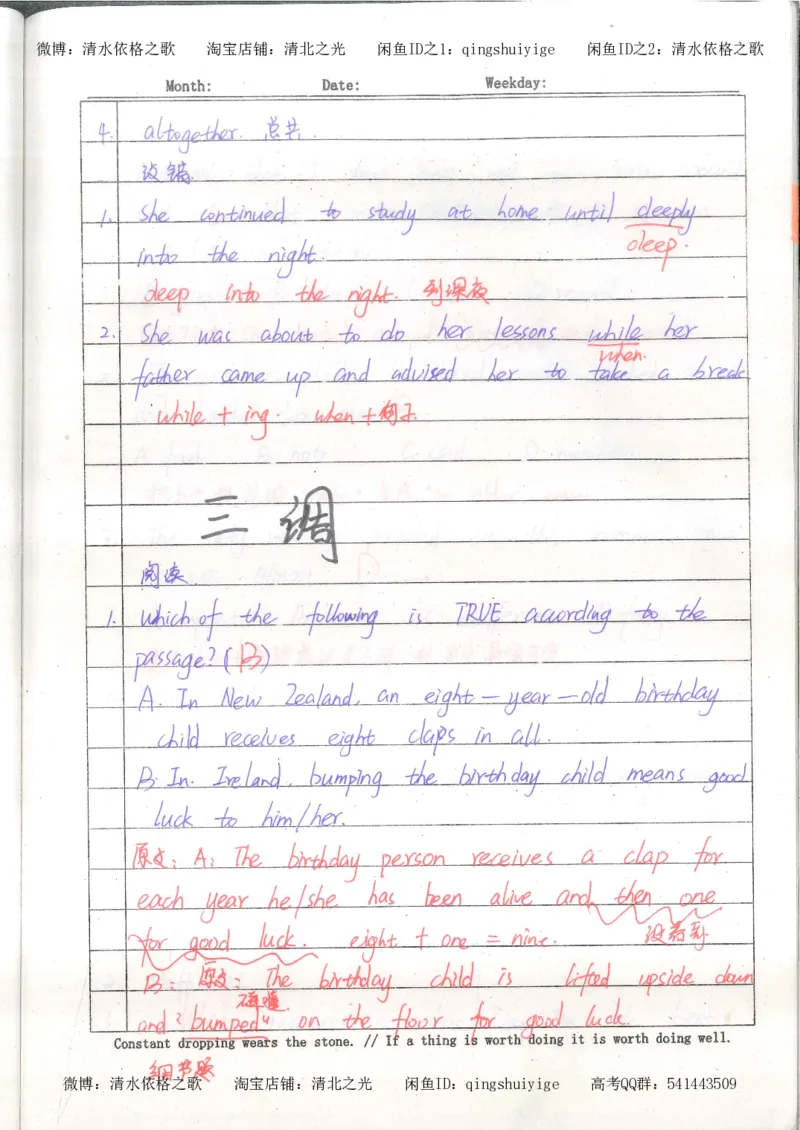 微博：清水依格之歌 淘宝店铺：清北之光 闲鱼ID之1：qingshuiyige 闲鱼ID之2：清水依格之歌
Month: Date: Weekday:
4. altogether. 总共.
改错
1. She continued to study at home until deeply
deep.
into the night.
deep into the night. 到深夜
2. She was about to do her lessons while her
when.
father came up and advised her to take a break
while + ing. when + 句子.
三调
阅读
1. Which of the following is TRUE acording to the
passage? (B)
A. In New Zealand, an eight-year-old birthday
child receives eight claps in all.
B. In. Ireland, bumping the birthday child means good
luck to him/her.
原文: A: The birthday person receives a clap for
each year he/she has been alive and then one
for good luck. eight + one = nine. 没看到
B: 原文: The birthday child is lifted upside down
碰撞
and "bumped" on the floor for good luck
Constant dropping wears the stone. // If a thing is worth doing it is worth doing well.
细节题
微博：清水依格之歌 淘宝店铺：清北之光 闲鱼ID：qingshuiyige 高考QQ群：541443509